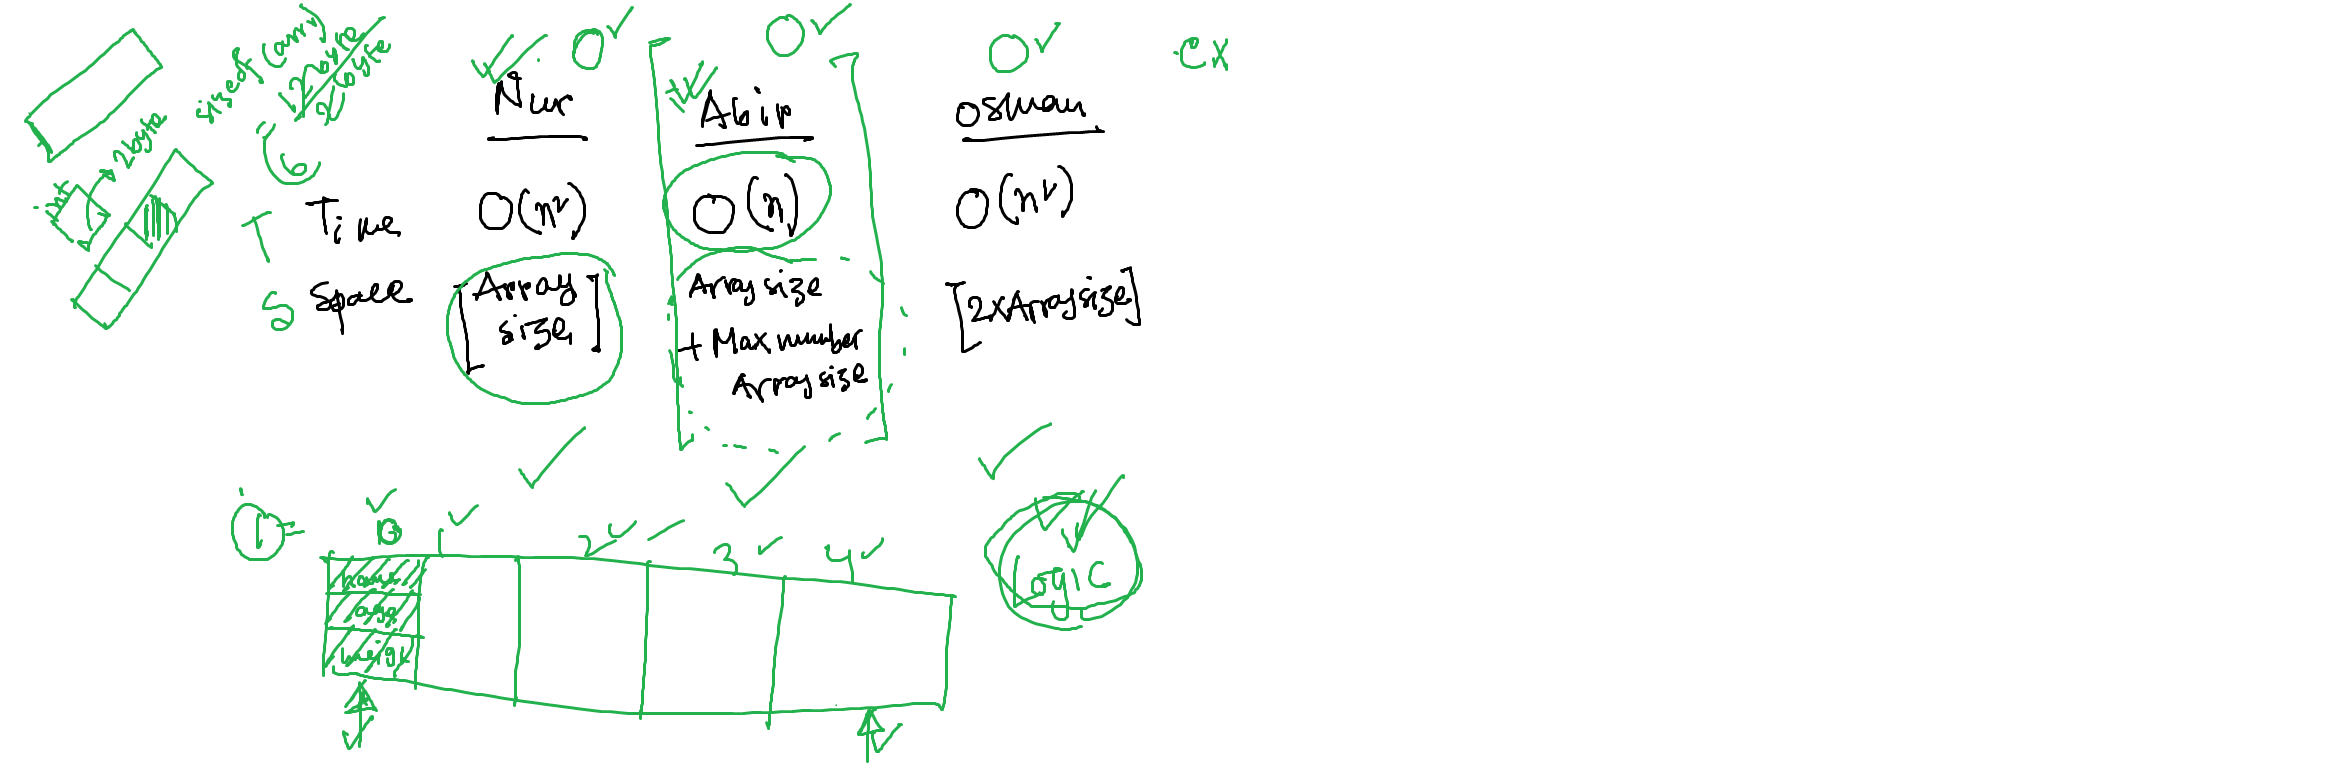 sizeof (arr)
120byte
2 byte
int
2byte
6
Nur
Abir
osman
ex
T
Time
O(n²)
O(n)
O(n²)
S
Space
[Array size]
Array size
+ Max number
Array size
[2xArraysize]
1 =
0
1
2
3
4
name
age
heigt
Logic